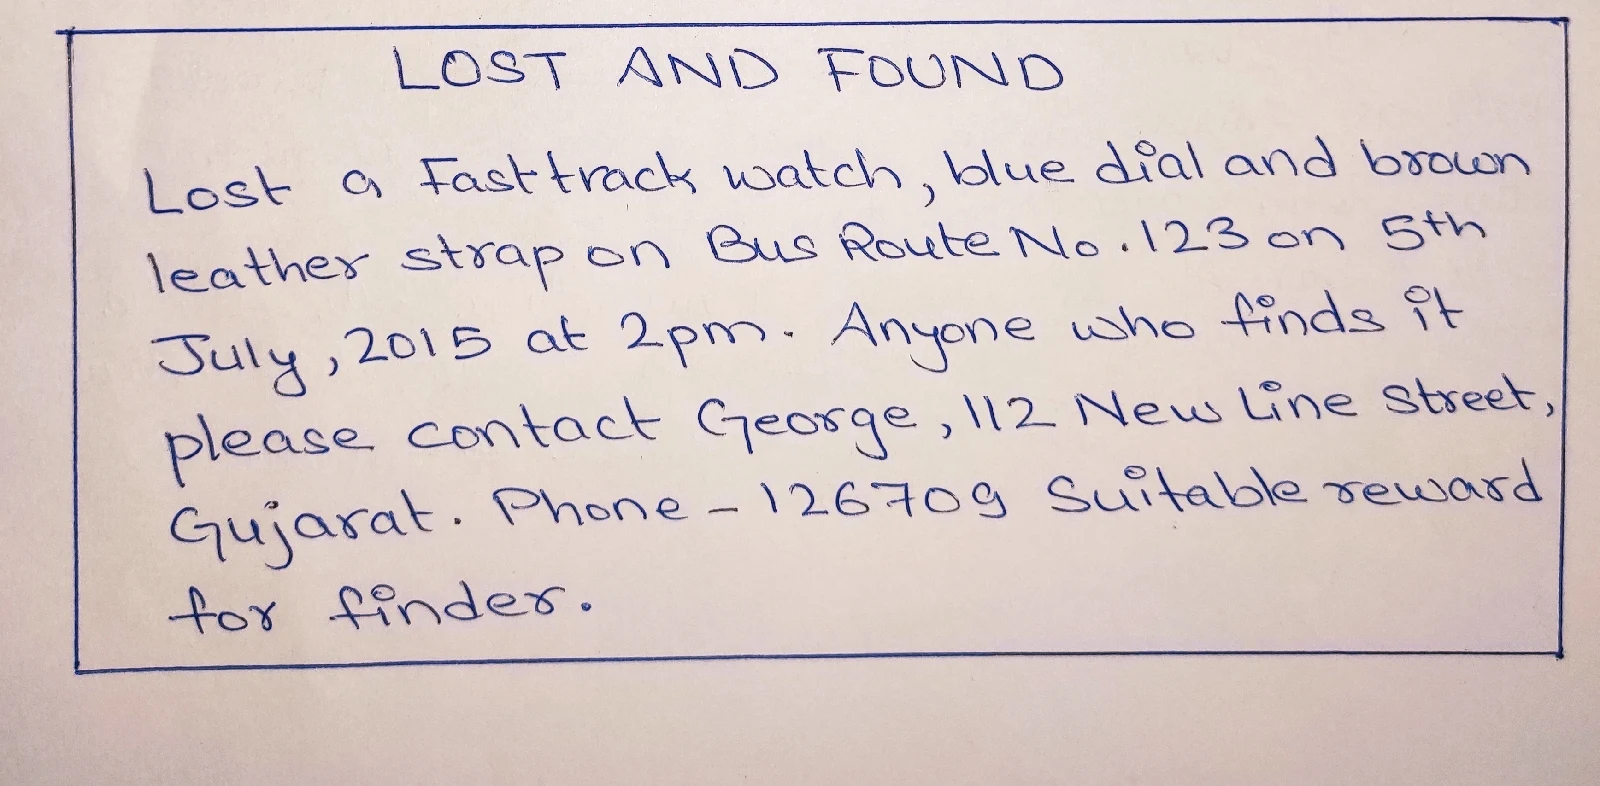 LOST AND FOUND
Lost a Fasttrack watch, blue dial and brown
leather strap on Bus Route No. 123 on 5th
July, 2015 at 2pm. Anyone who finds it
please contact George, 112 New Line Street,
Gujarat. Phone - 126709 Suitable reward
for finder.